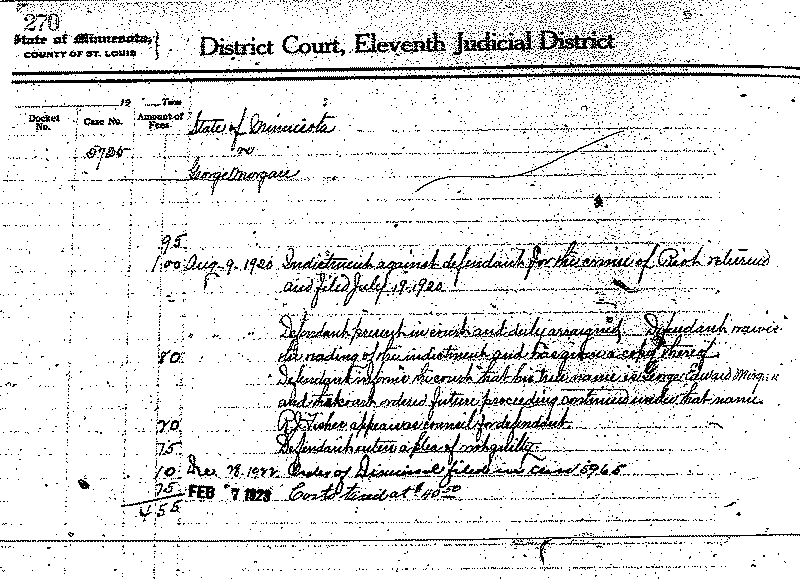 270
State of Minnesota,
COUNTY OF ST. LOUIS
District Court, Eleventh Judicial District
19 Term
Docket No. Case No. Amount of Fees.
State of Minnesota
5725 vs
George Morgan
95
1 00 Aug. 9. 1920 Indictment against defendant for the crime of Riot returned
and filed July 19. 1920
" " " Defendant present in court and duly arraigned. Defendant waives
80 the reading of the indictment and has given a copy thereof
Defendant informs the court that his true name is George Edward
and the court ordered future proceeding continued under that name.
20 R.J. Fisher appears as council for defendant.
75 Defendant enters a plea of not guilty.
10 Dec. 28. 1922 Order of Dismissal filed in case 5965
75 FEB 7 1923 Costs taxed at $40.50
4 55